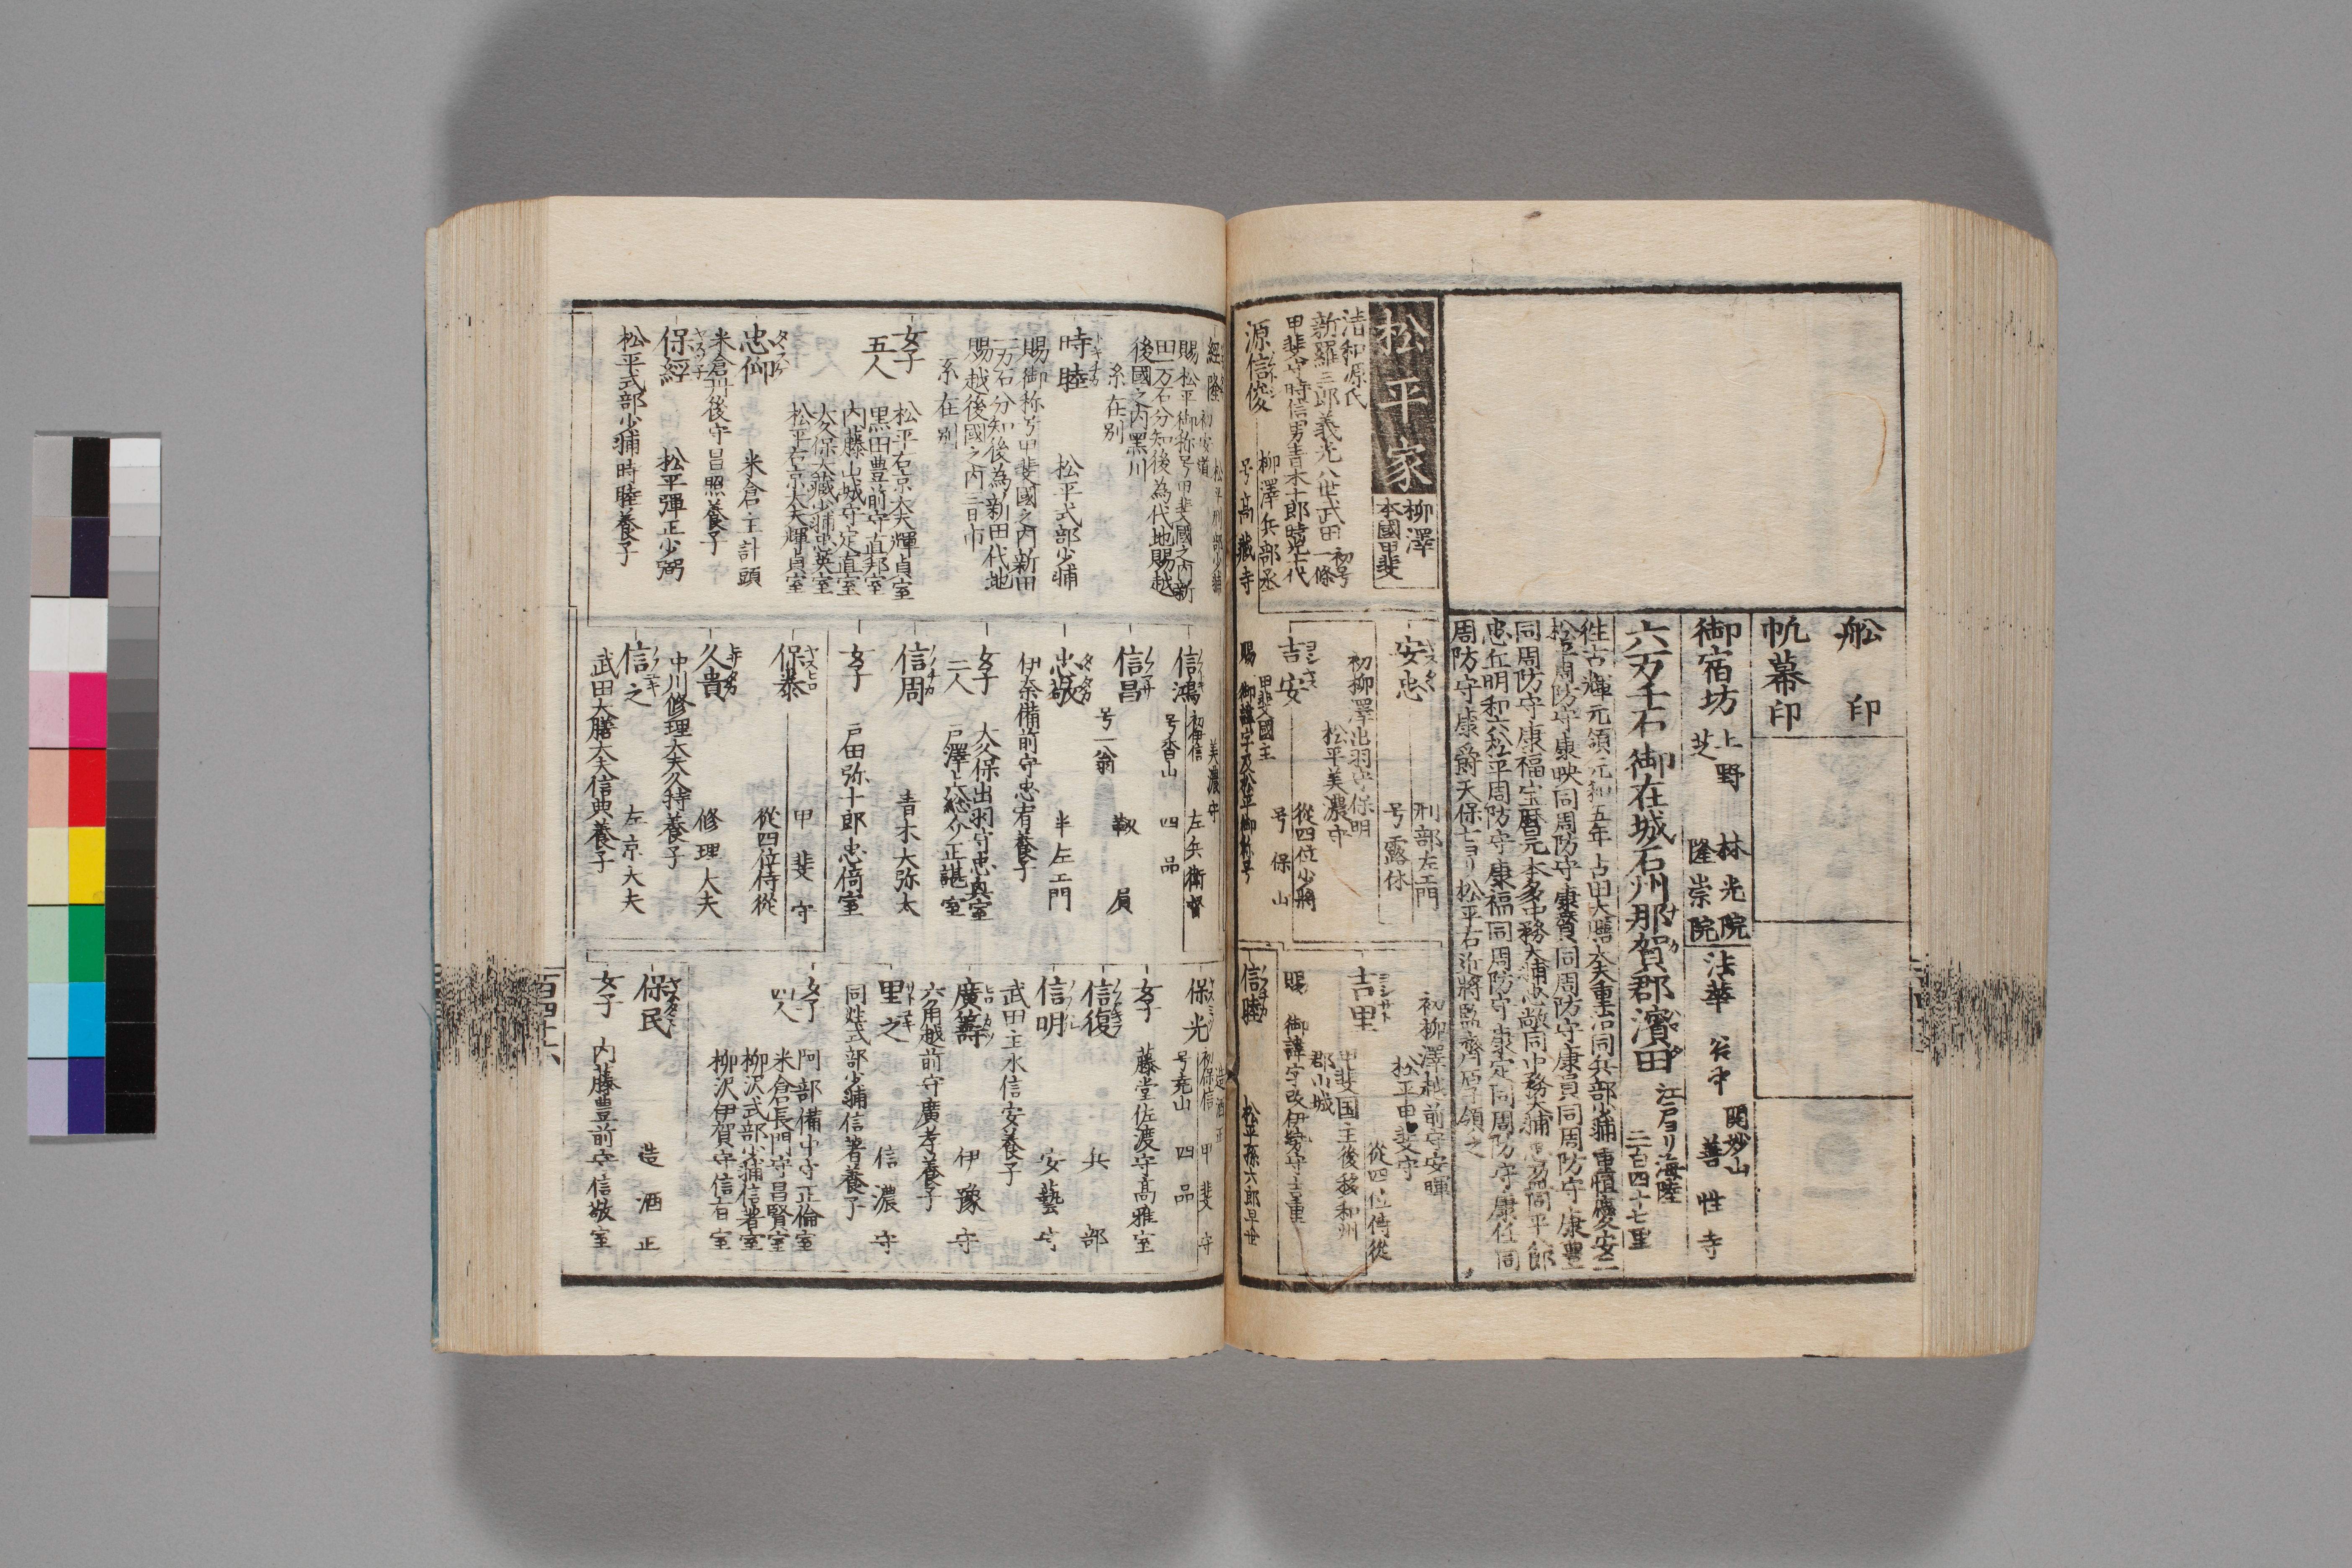 舩印
帆幕印
御宿坊
上野 林光院
芝 隆崇院
法華 谷中
関妙山
善性寺
六万千石 御在城石州那賀郡濱田
江戸ヨリ海陸
二百四十七里
往古輝元領元和五年古田大膳大夫重治同兵部少輔重恒慶安二
松平周防守康映同周防守康貞同周防守康員同周防守康豊
同周防守康福宝暦元本多中務大輔忠敞同中務大輔忠盈同平八郎
忠丘明和六松平周防守康福同周防守康定同周防守康任同
周防守康爵天保七ヨリ松平右近将監齊厚領之
松平家
柳澤
本國甲斐
清和源氏
新羅三郎義光八世武田一條
初号
甲斐守時信男青木十郎時光十代
源信俊
柳澤兵部丞
号高藏寺
安忠
刑部左エ門
号露休
初柳澤出羽守保明
松平美濃守
吉安
從四位少將
号保山
甲斐國主
賜 御諱字及松平御称号
初柳澤越前守安暉
松平甲斐守
吉里
從四位侍從
甲斐国主後移和州
郡山城
賜 御諱字改伊勢守吉里
信睦
松平孫六郎早世
經隆
初安道
松平刑部少輔
賜松平御称号甲斐國之内新
田一万石分知後為代地賜越
後國之内黒川
系在別
時睦
松平式部少輔
賜御称号甲斐國之内新田
一万石分知後為新田代地
賜越後國之内三日市
系在別
女子
五人
松平右京大夫輝貞室
黒田豊前守直邦室
内藤山城守定直室
大久保大藏少輔忠英室
松平右京大夫輝貞室
忠仰
米倉主計頭
米倉丹後守昌照養子
保經
松平彈正少弼
松平式部少輔時睦養子
信鴻
初信
美濃守
左兵衛督
号香山
四品
信昌
靱負
号一翁
忠敬
半左エ門
伊奈備前守忠宥養子
女子
二人
大久保出羽守忠真室
戸澤上総介正諶室
信周
青木大弥太
女子
戸田弥十郎忠倚室
保泰
甲斐守
從四位侍從
久貴
修理大夫
中川修理大夫久持養子
信之
左京大夫
武田大膳大夫信典養子
保光
初保信
造酒正
甲斐守
号尭山
四品
女子
藤堂佐渡守高雅室
信復
兵部
信明
安藝守
武田主水信安養子
廣籌
伊豫守
六角越前守廣孝養子
里之
信濃守
同姓式部少輔信著養子
女子
四人
阿部備中守正倫室
米倉長門守昌賢室
柳沢式部少輔信著室
柳沢伊賀守信有室
保民
造酒正
女子
内藤豊前守信敬室
百四十六